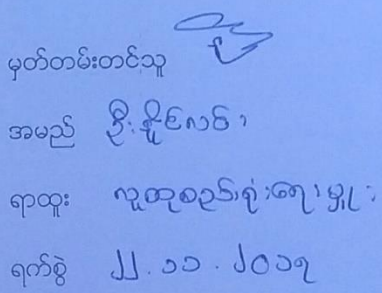 မှတ်တမ်းတင်သူ
အမည် ဦးနိုင်လင်း
ရာထူး လူထုစည်းရုံးရေးမှူး
ရက်စွဲ ၂၂.၁၁.၂၀၁၇